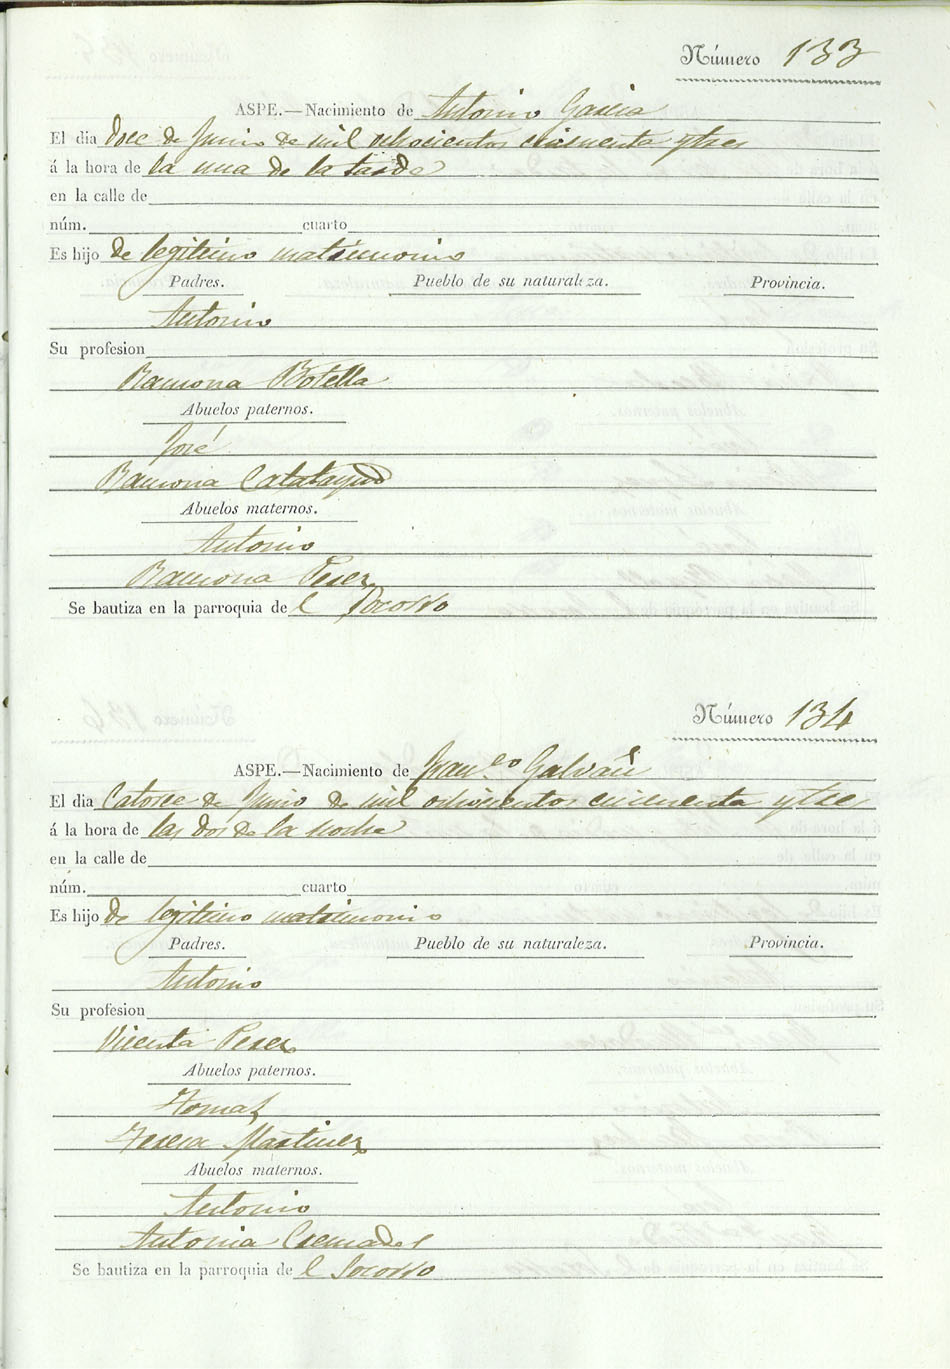 Número 133
ASPE.—Nacimiento de Antonio Garcia
El dia doce de Junio de mil ochocientos cincuenta y tres
á la hora de la una de la tarde
en la calle de
núm. cuarto
Es hijo de legitimo matrimonio
Padres. Pueblo de su naturaleza. Provincia.
Antonio
Su profesion
Ramona Botella
Abuelos paternos.
José
Ramona Calatayud
Abuelos maternos.
Antonio
Ramona Perez
Se bautiza en la parroquia de l Socorro
Número 134
ASPE.—Nacimiento de Fran.co Galvañ
El dia Catorce de Junio de mil ochocientos cincuenta y tres
á la hora de las dos de la noche
en la calle de
núm. cuarto
Es hijo de legitimo matrimonio
Padres. Pueblo de su naturaleza. Provincia.
Antonio
Su profesion
Vicenta Perez
Abuelos paternos.
Tomas
Teresa Martinez
Abuelos maternos.
Antonio
Antonia Cremades
Se bautiza en la parroquia de l Socorro